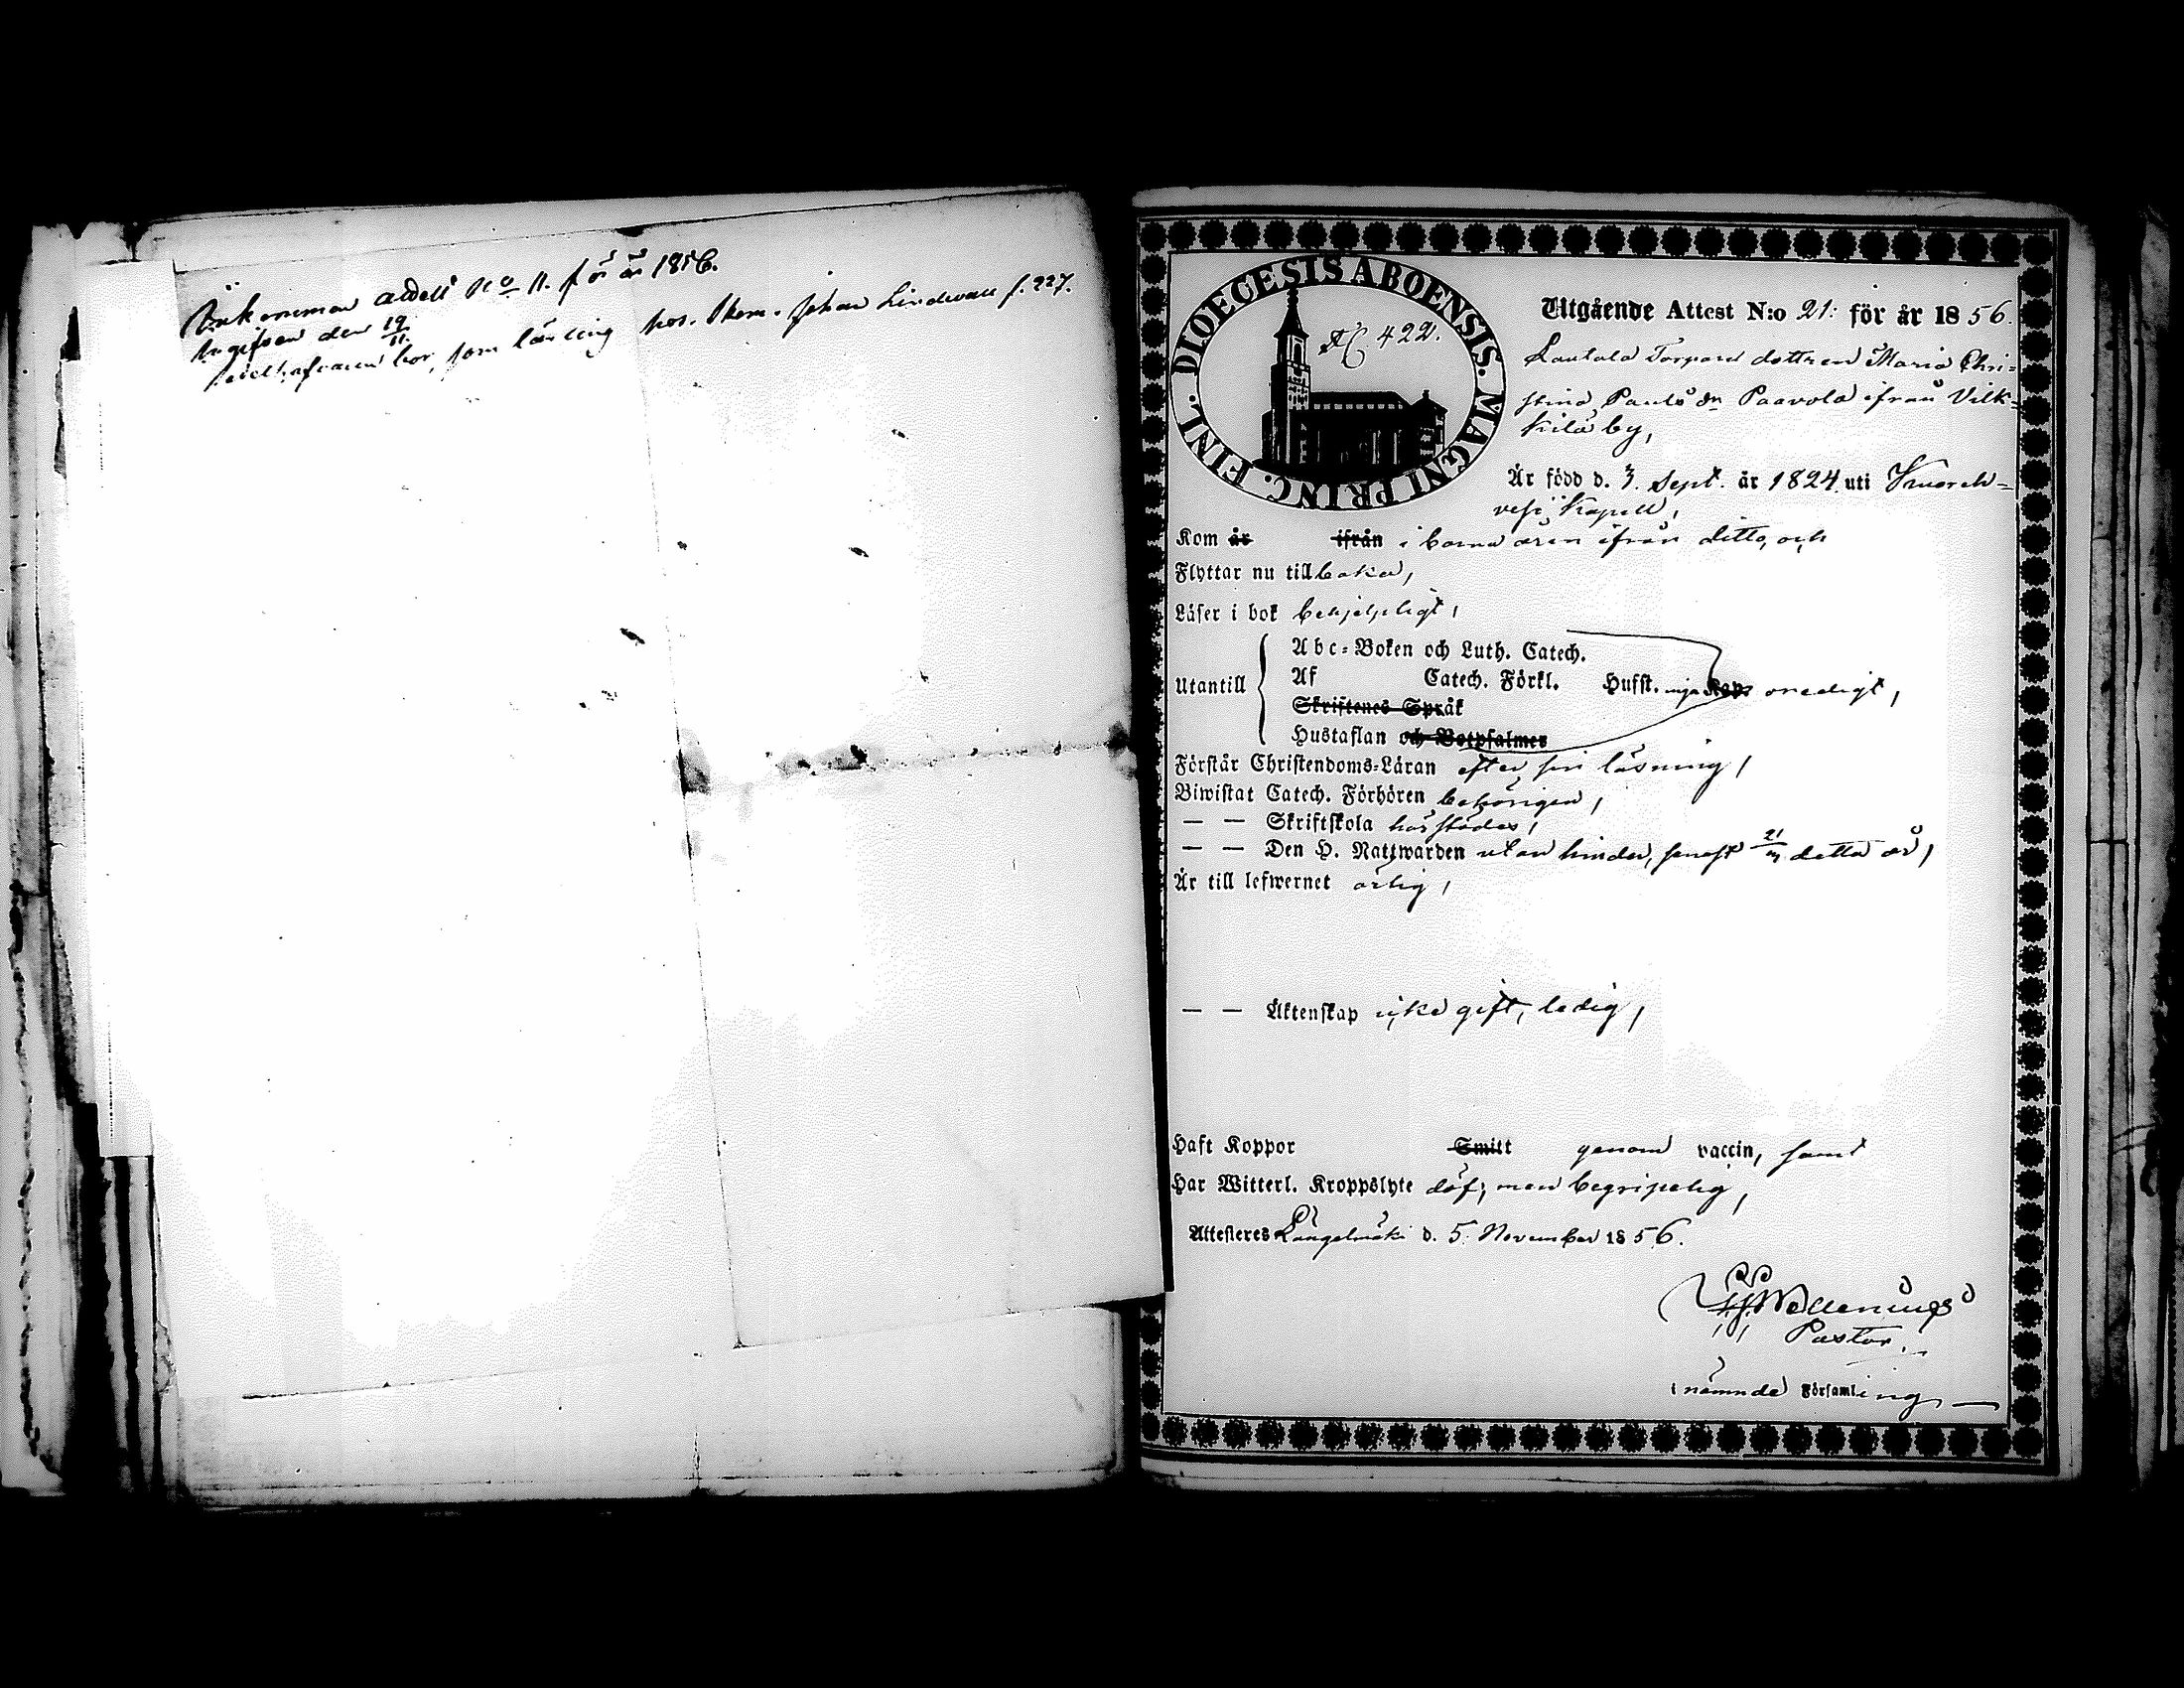 Inkommen attest No 11. för år 1856.
Ingifven den 19/11.
innehafvaren bor, som lärling hos Skom. Johan Lindwall f. 227.
DIOECESIS ABOENSIS. MAGNI PRINC. FINL.
422.
Utgående Attest N:o 21: för år 1856.
Lautala Torpare dottren Maria Chri-
stina Pauls dr Paavola ifrån Vilk-
kilä by,
Är född d. 3. Sept. år 1824. uti Kuore-
vesi Kapell,
Kom år ifrån i barna åren ifrån ditto, och
Flyttar nu till baka,
Läser i bok behjelpligt,
Abc-Boken och Luth. Catech.
Utantill Af Catech. Förkl. Husst. oredigt,
Skriftenes Språk
Hustaflan och Botpsalmer
Förstår Christendoms-Läran efter sin läsning,
Biwistat Catech. Förhören behörigen,
— — Skriftskola härstädes,
— — Den H. Nattwarden utan hinder, senast 21/9 detta år,
Är till lefwernet ärlig,
— — Äktenskap icke gift, ledig,
Haft Koppor Smitt genom vaccin, samt
Har Witterl. Kroppslyte döf, men begripelig,
Attesteres Längelmäki d. 5. November 1856.
Pastor.
i nämnde Församling